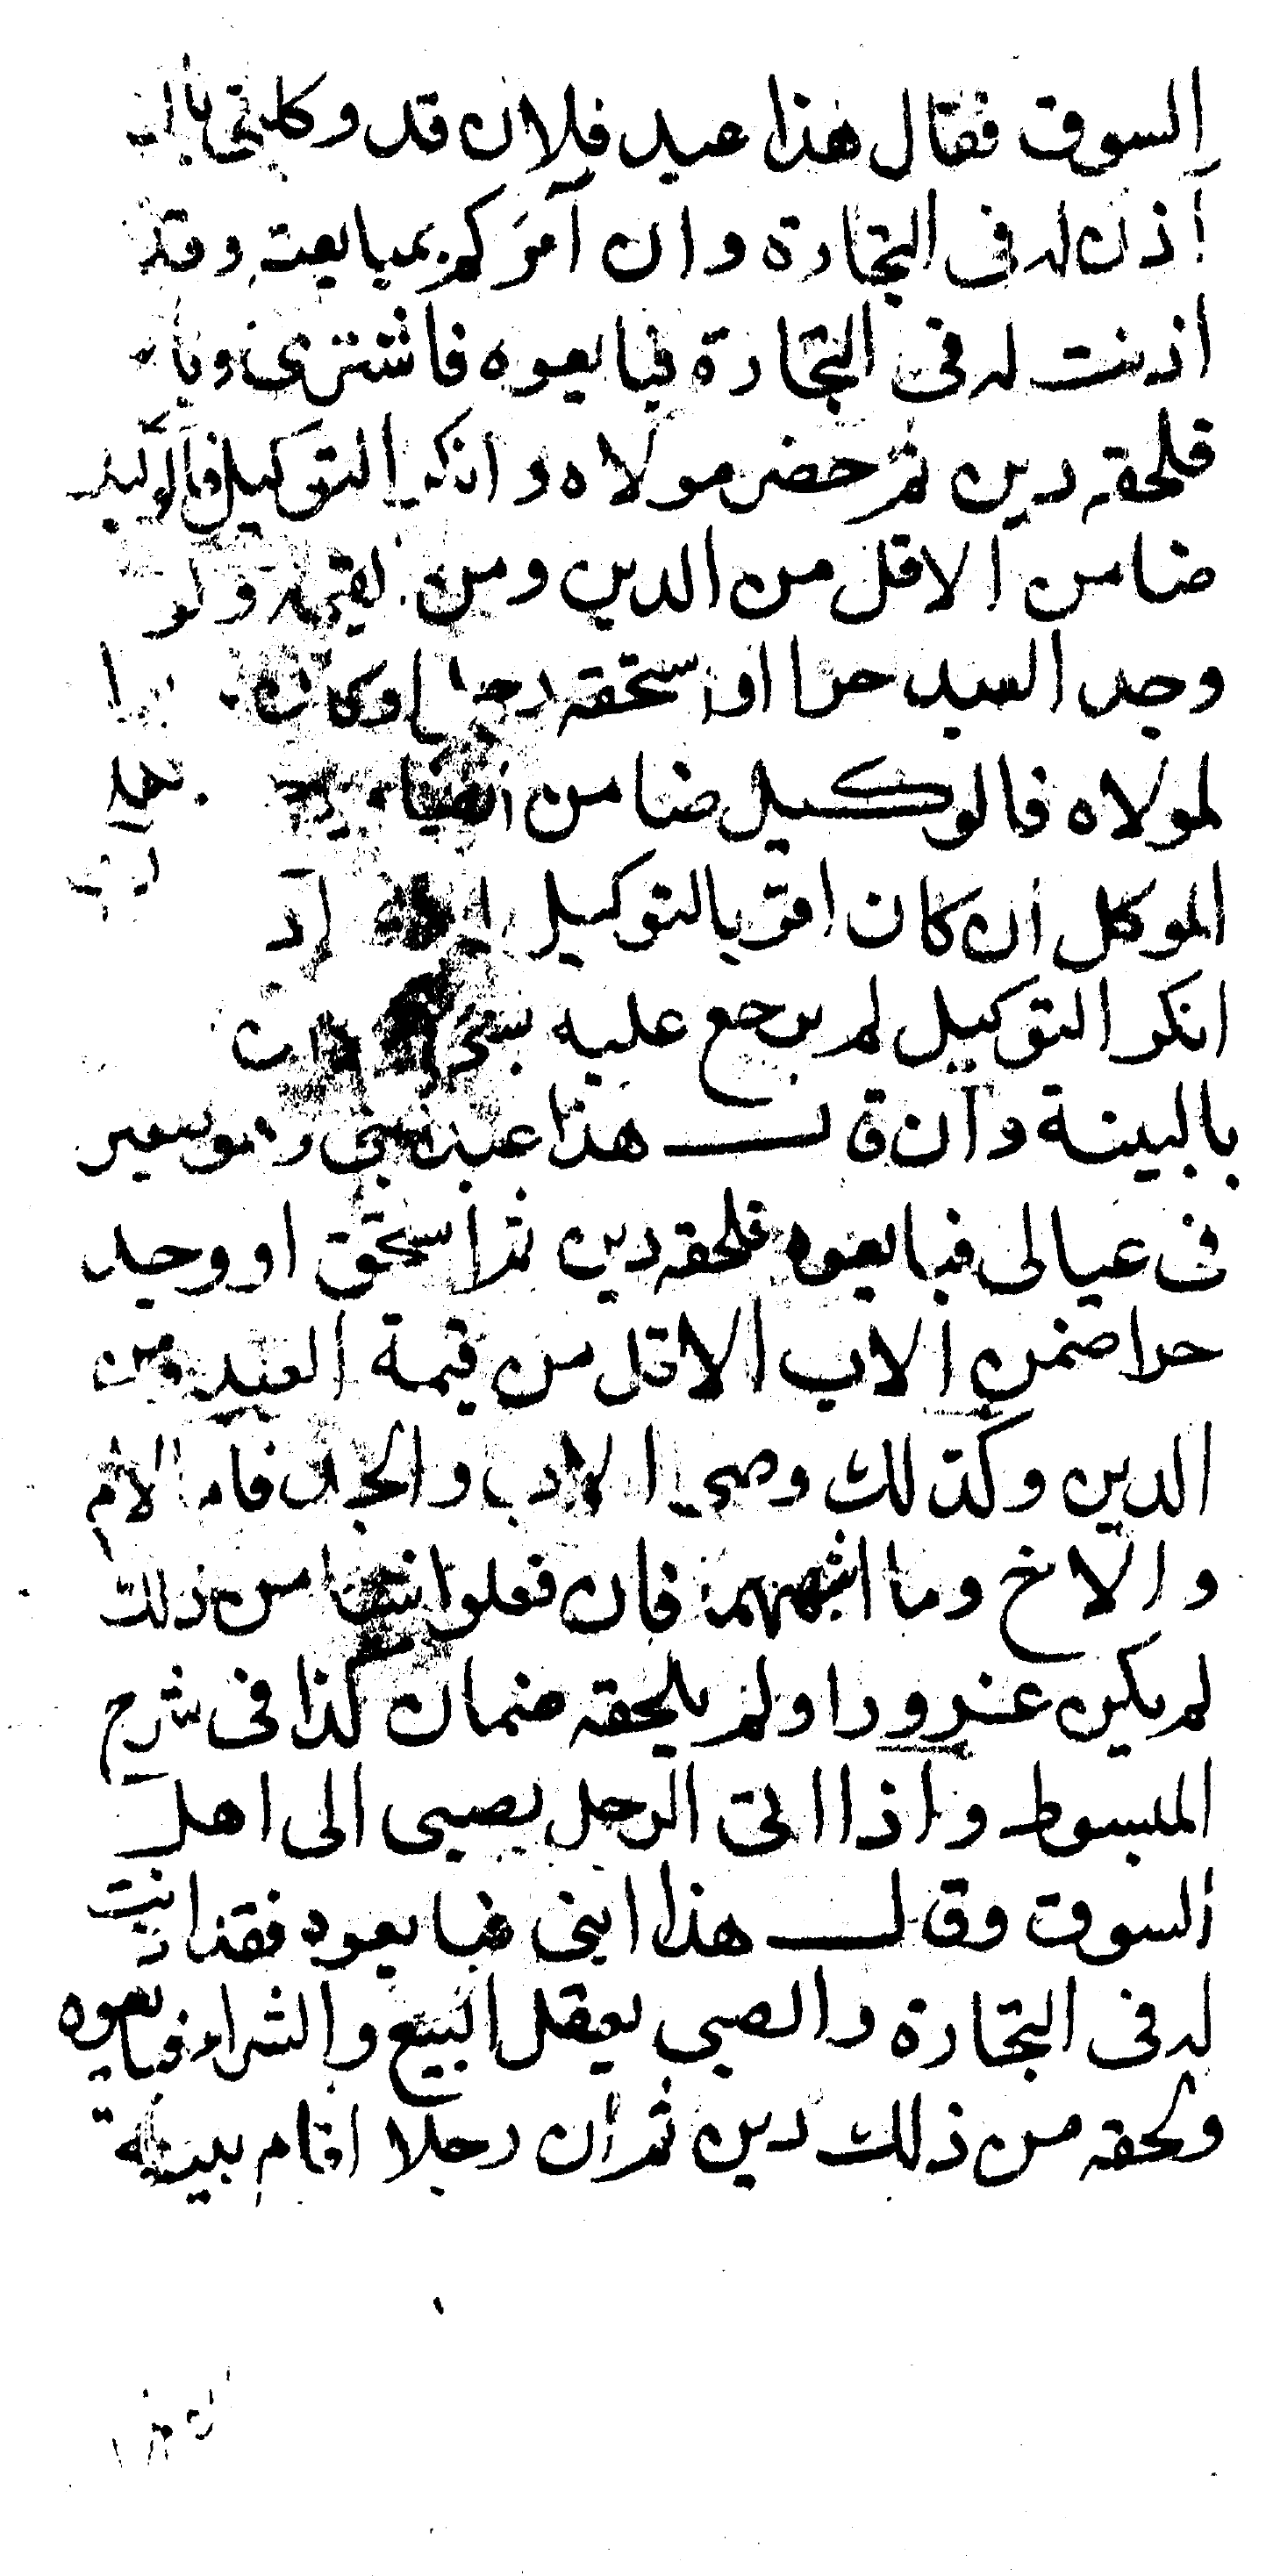 السوق فقال هذا عبد فلان قد وكلني بان
اذن له في التجارة وان آمركم بمبايعته وقد
اذنت له في التجارة فبايعوه فاشترى وباع
فلحقه دين ثم حضر مولاه وانكر التوكيل فالوكيل
ضامن الاقل من الدين ومن القيمة ولو
وجد العبد حرا او استحقه رجل او كان
لمولاه فالوكيل ضامن ايضا
الموكل ان كان اقر بالتوكيل
انكر التوكيل لم يرجع عليه
بالبينة وان قال هذا عبد ابني وهو صغير
في عيالي فبايعوه فلحقه دين ثم استحق او وجد
حرا ضمن الاب الاقل من قيمة العبد ومن
الدين وكذلك وصي الاب والجد فاما الام
والاخ وما اشبههما فان فعلوا شيئا من ذلك
لم يكن غرورا ولم يلحقه ضمان كذا في شرح
المبسوط واذا اتى الرجل بصبي الى اهل
السوق وقال هذا ابني فبايعوه فقد اذنت
له في التجارة والصبي يعقل البيع والشراء فبايعوه
ولحقه من ذلك دين ثم ان رجلا اقام بينة